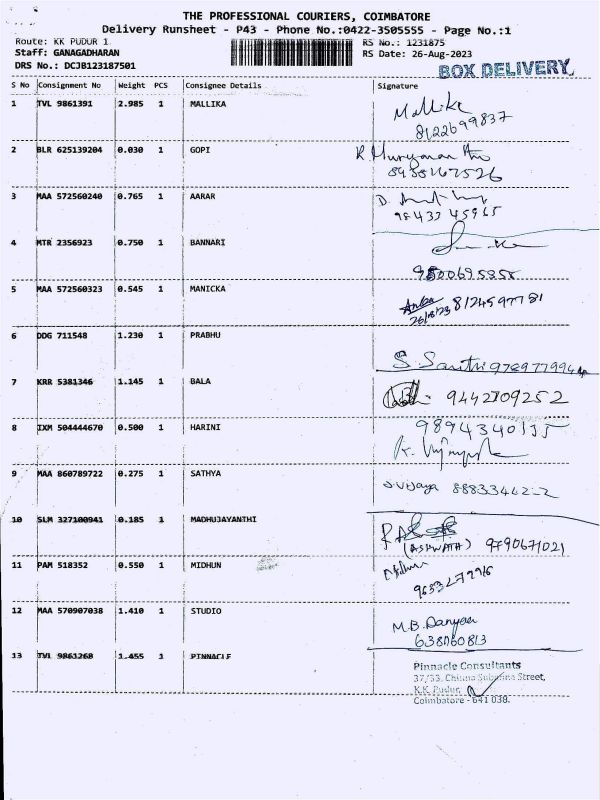 THE PROFESSIONAL COURIERS, COIMBATORE
Delivery Runsheet - P43 - Phone No.:0422-3505555 - Page No.:1
Route: KK PUDUR 1 RS No.: 1231875
Staff: GANAGADHARAN RS Date: 26-Aug-2023
DRS No.: DCJB123187501
BOX DELIVERY
S No Consignment No Weight PCS Consignee Details Signature
1 TVL 9861391 2.985 1 MALLIKA Mallika
8122699837
2 BLR 625139204 0.030 1 GOPI
3 MAA 572560240 0.765 1 AARAR
4 MTR 2356923 0.750 1 BANNARI
5 MAA 572560323 0.545 1 MANICKA 8124597781
26/8/23
6 DDG 711548 1.230 1 PRABHU
7 KRR 5381346 1.145 1 BALA 9442709252
8 IXM 504444670 0.500 1 HARINI 9894340135
9 MAA 860789722 0.275 1 SATHYA S.Vijaya
10 SLM 327100941 0.185 1 MADHUJAYANTHI
(ASHWATH) 9790671021
11 PAM 518352 0.550 1 MIDHUN
12 MAA 570907038 1.410 1 STUDIO M.B.
638060813
13 TVL 9861268 1.455 1 PINNACLE
Pinnacle Consultants
Street,
K.K. Pudur,
Coimbatore - 641 038.